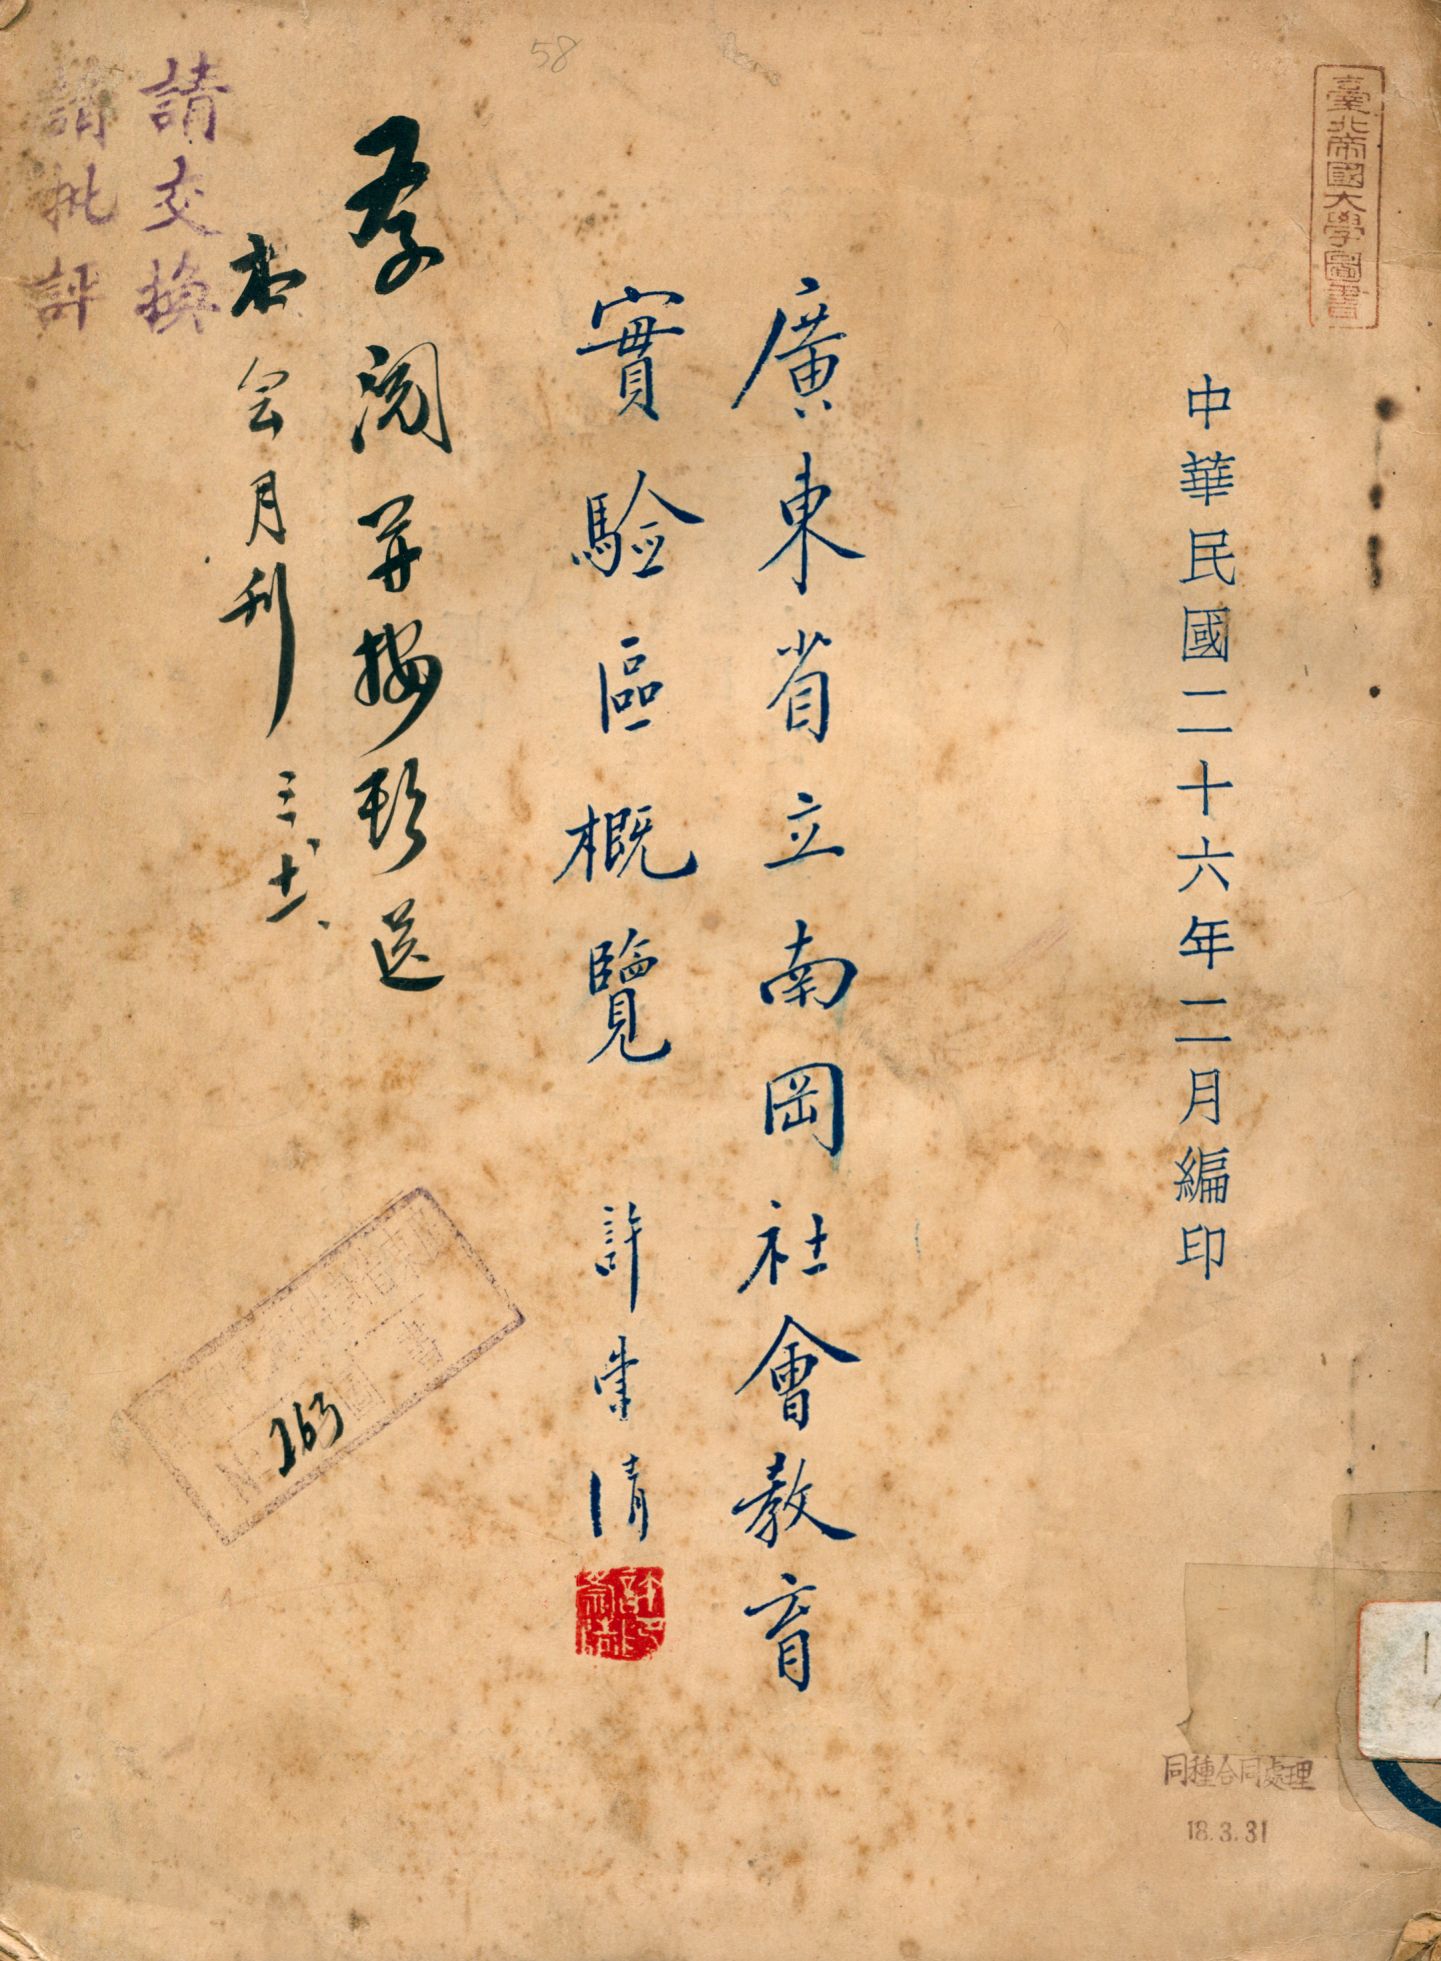 臺北帝國大學圖書
中華民國二十六年二月編印
廣東省立南岡社會教育
實驗區概覽
許崇清
閱并按期送
本会月刊
三、十一、
請交換
請批評
58
圖書
No 263
同種合同處理
18.3.31